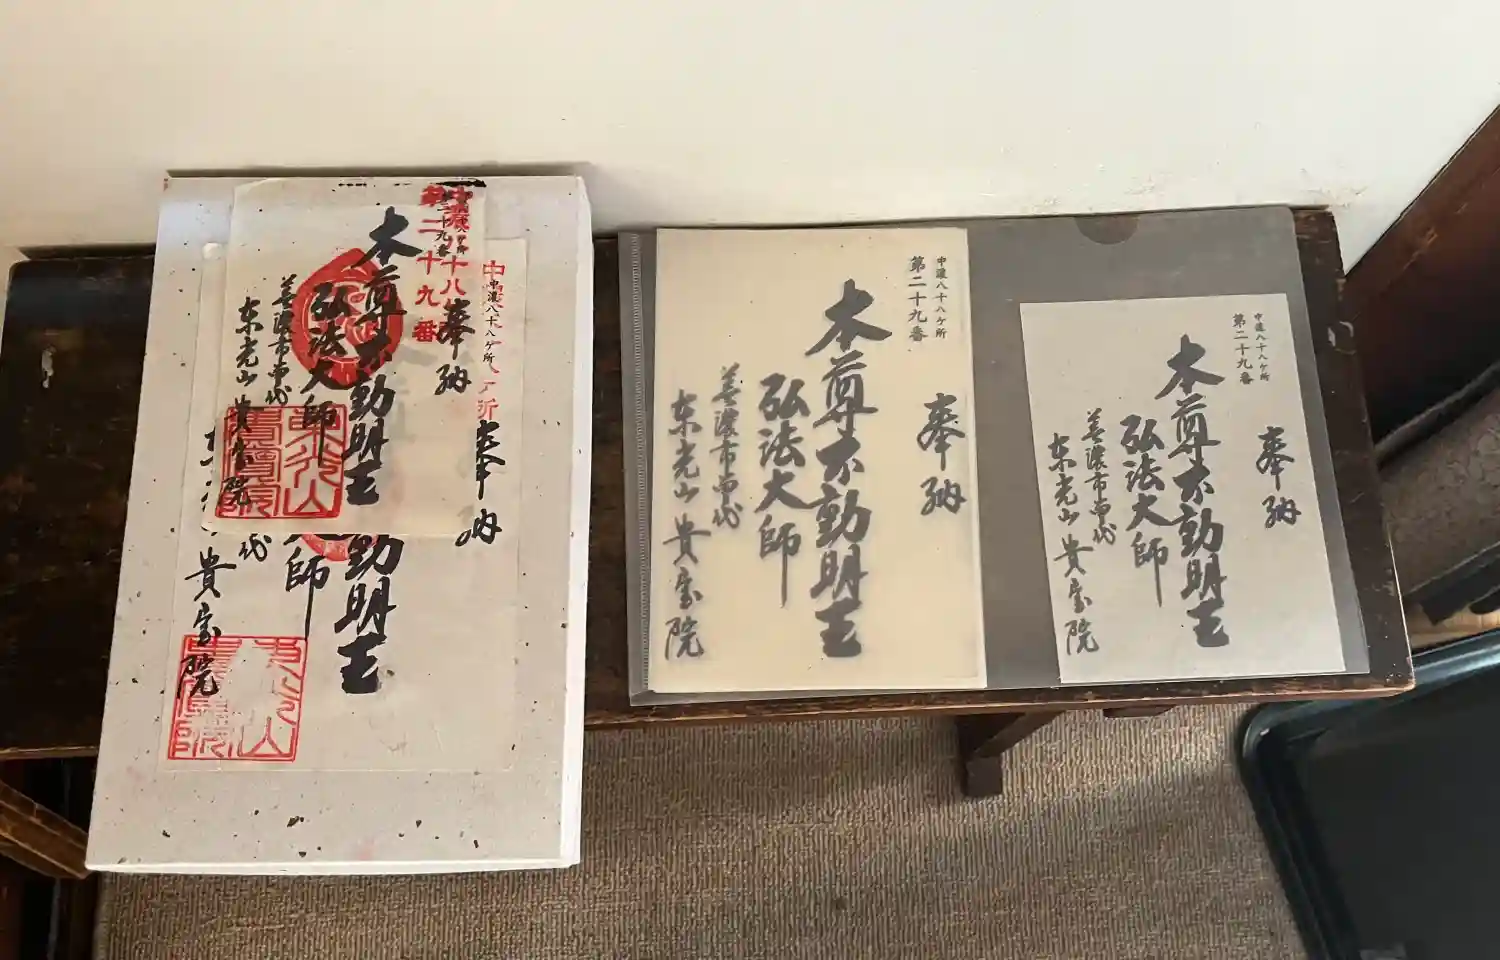 中濃八十八ヶ所
第二十九番
奉納
本尊不動明王
弘法大師
美濃市曽代
東光山貴宝院
中濃八十八ヶ所
奉納
動明王
大師
代
貴宝院
中濃八十八ケ所
第二十九番
奉納
本尊不動明王
弘法大師
美濃市曽代
東光山貴宝院
中濃八十八ケ所
第二十九番
奉納
本尊不動明王
弘法大師
美濃市曽代
東光山貴宝院